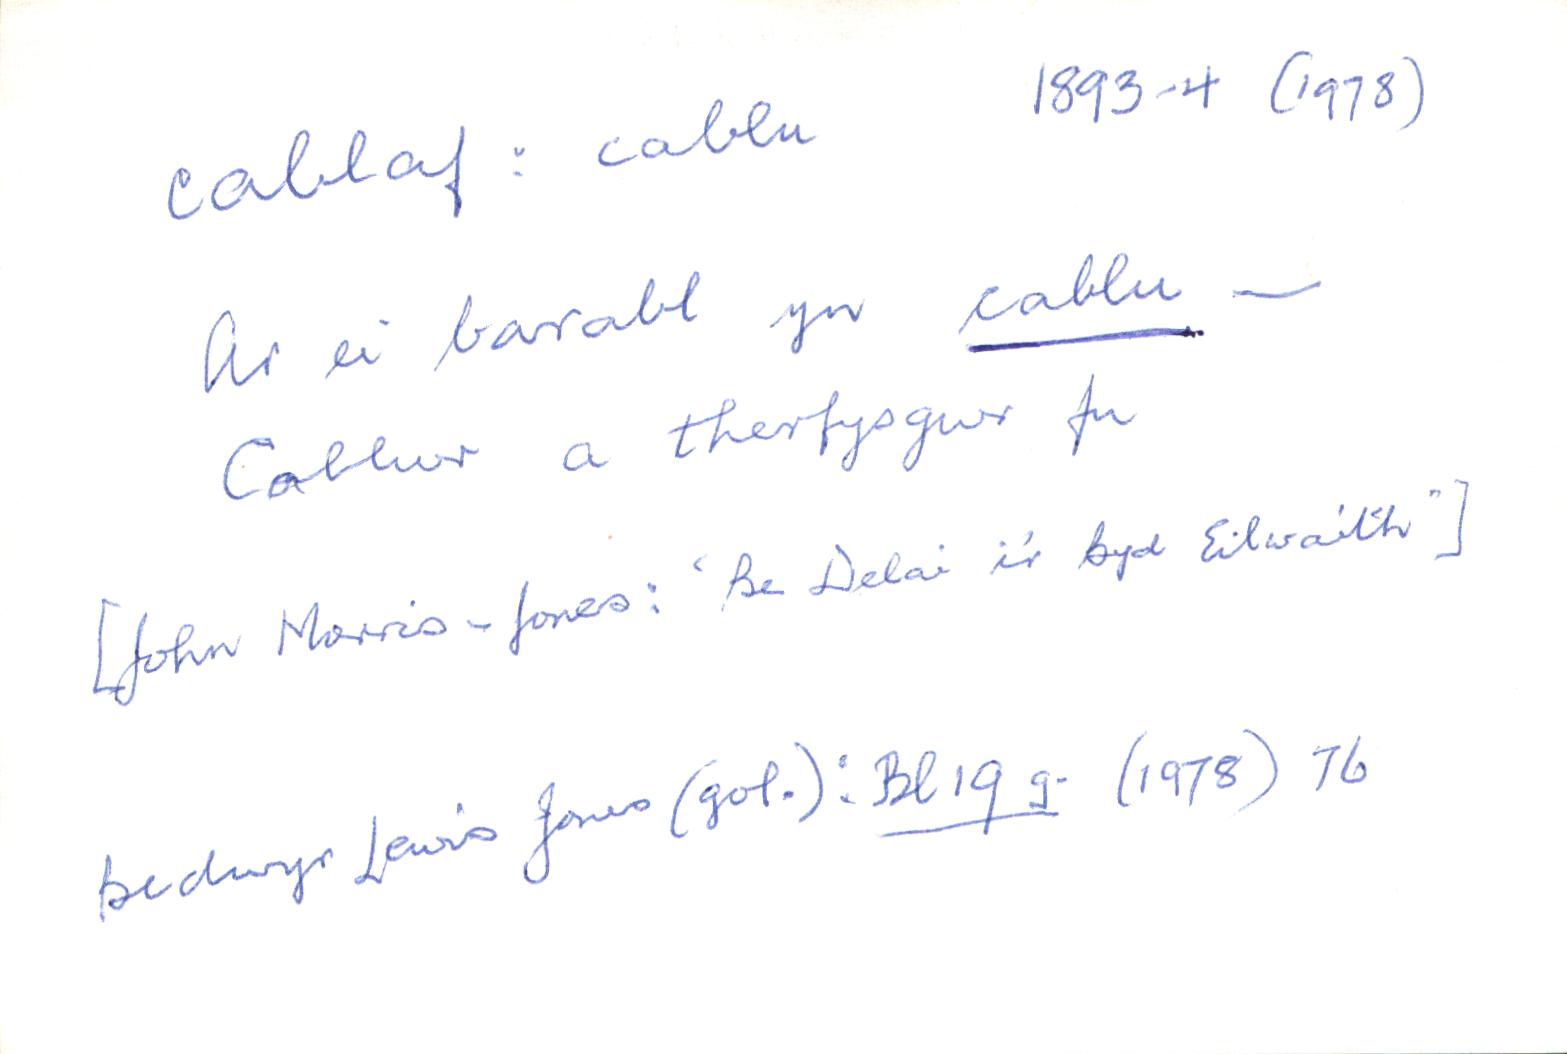 cablaf : cablu 1893-4 (1978)
Ar ei barabl yn cablu —
Cablwr a therfysgwr fu
[John Morris-Jones: "Be Delai i'r byd Eilwaith"]
Bedwyr Lewis Jones (gol.): Bl 19 g. (1978) 76